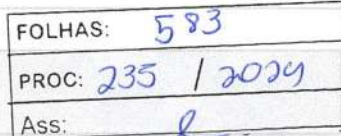 FOLHAS: 583
PROC: 235 / 2024
Ass: